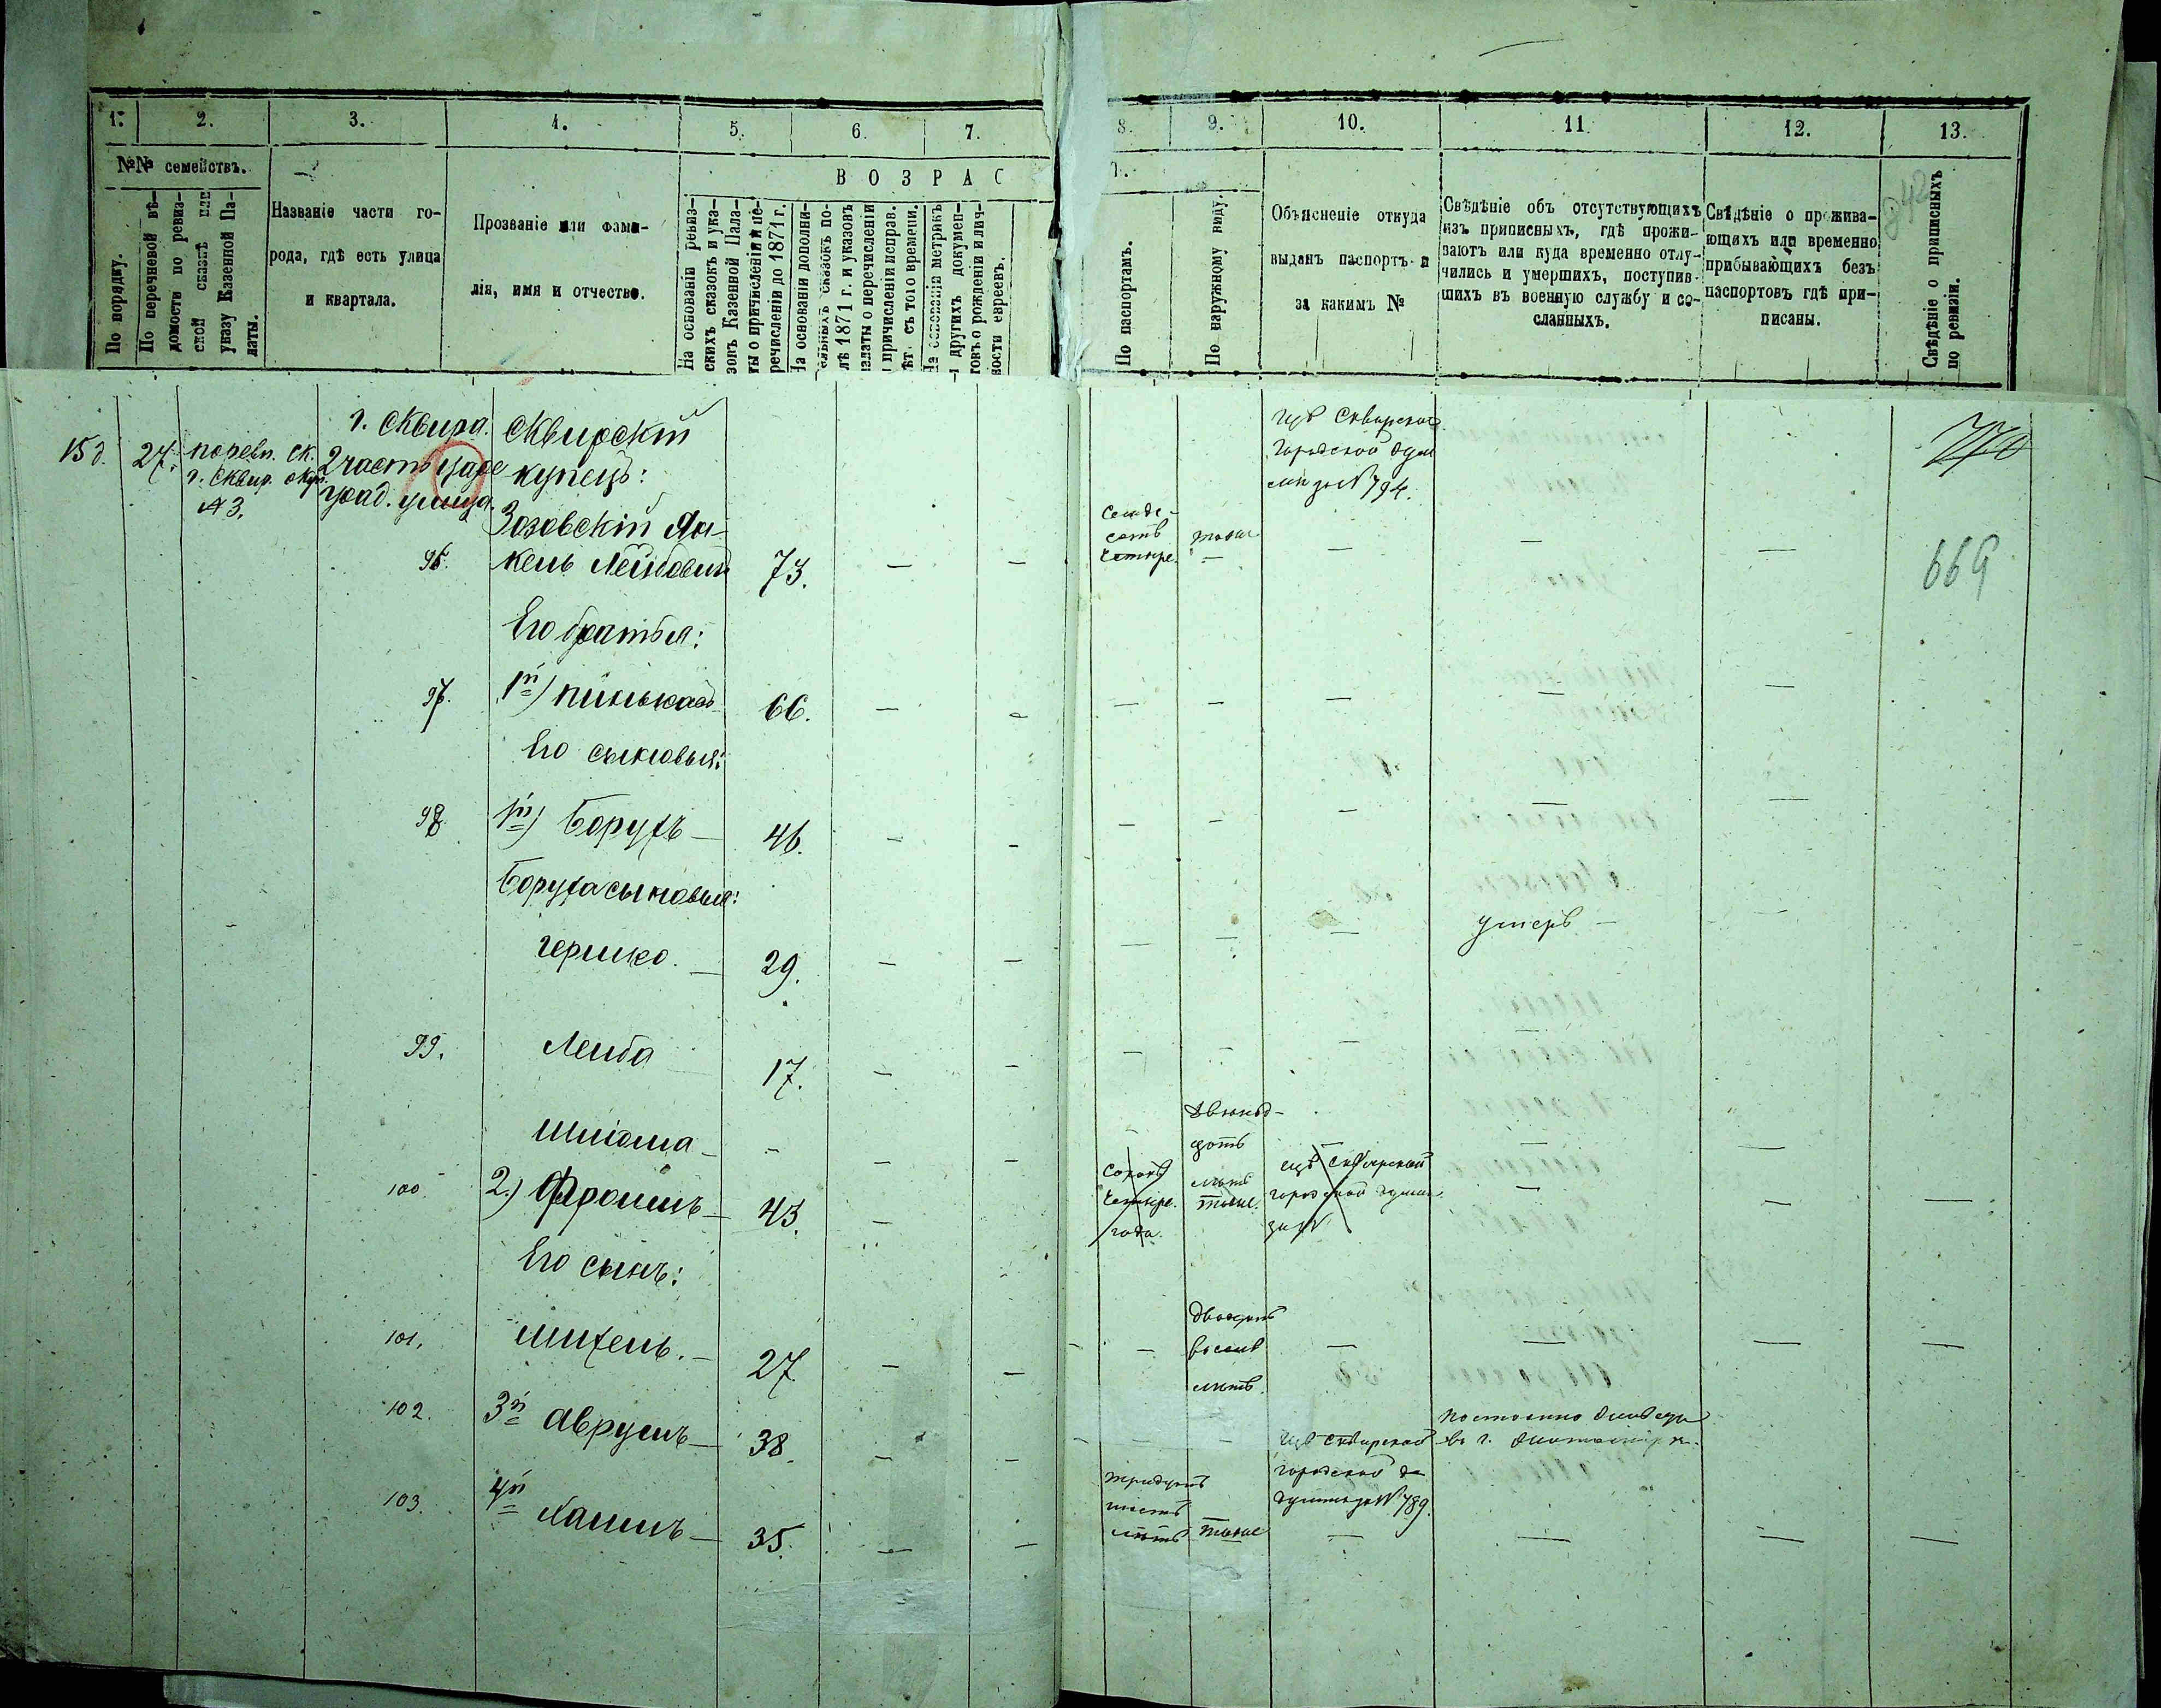 1.
2.
3.
4.
5.
6.
7.
8.
9.
10.
11.
12.
13.
№№ семействъ.
По порядку.
По перечневой вѣ-
домости по ревиз-
ской сказкѣ или
указу Казенной Па-
латы.
Названіе части го-
рода, гдѣ есть улица
и квартала.
Прозваніе или фами-
лія, имя и отчество.
ВОЗРАС
Т.
На основаніи ревиз-
скихъ сказокъ и ука-
зовъ Казенной Пала-
ты о причисленіи и пе-
речисленіи до 1871 г.
На основаніи дополни-
тельныхъ сказокъ по-
слѣ 1871 г. и указовъ
палаты о перечисленіи
и причисленіи исправ.
лѣт. съ того времени.
На основаніи метрикъ
и другихъ докумен-
товъ о рожденіи и лич-
ности евреевъ.
По паспортамъ.
По наружному виду.
Объясненіе откуда
выданъ паспортъ и
за какимъ №
Свѣдѣніе объ отсутствующихъ
изъ приписныхъ, гдѣ прожи-
ваютъ или куда временно отлу-
чились и умершихъ, поступив-
шихъ въ военную службу и со-
сланныхъ.
Свѣдѣніе о прожива-
ющихъ или временно
прибывающихъ безъ
паспортовъ гдѣ при-
писаны.
Свѣдѣніе о приписныхъ
по ревизіи.
15 д.
27.
по рев. ск.
г. Сквир.
№ 3.
г. Сквира.
2 часть
град. улица.
Сквирскій
купецъ:
Зозовскій Ян-
96. кель Лейбовичъ 73.
Семде-
сятъ
четыре.
тоже
Изъ Сквирской
Городской Думы
за № 794.
770
669
Его братья:
97. 1й) Пинькасъ 66.
Его сыновья:
98. 1й) Борухъ 46.
Боруха сыновья:
Гершко. 29.
умеръ
99. Лейба 17.
Шліома
двенад-
цать
лѣтъ
100. 2.) Фроимъ 43.
Сорокъ
четыре
года.
тоже.
изъ Сквирской
городской думы
за №
Его сынъ:
101. Михель. 27
двадцать
восемь
лѣтъ.
102. 3й Аврумъ 38.
постоянно
въ г.
103. 4й Хаимъ 35.
тридцать
шесть
лѣтъ
тоже
Изъ Сквирской
городской
думы за № 789.